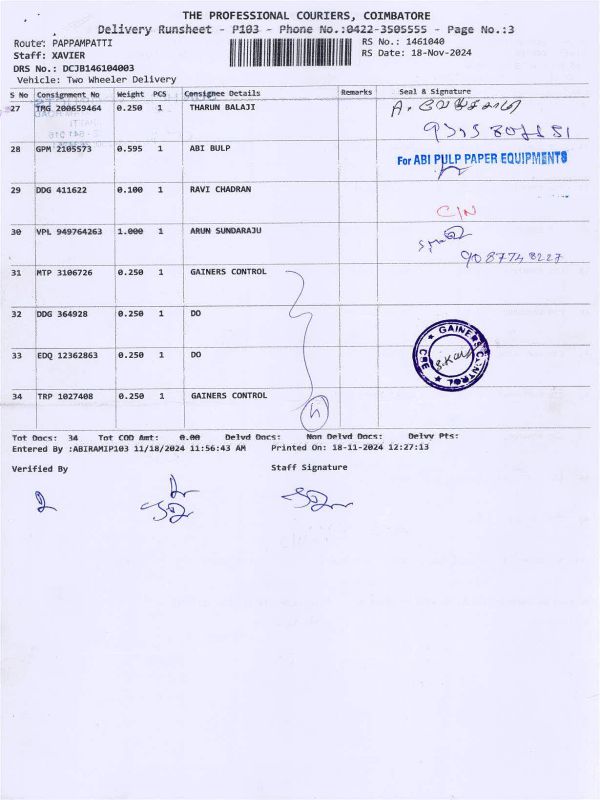 THE PROFESSIONAL COURIERS, COIMBATORE
Delivery Runsheet - P103 - Phone No.:0422-3505555 - Page No.:3
Route: PAPPAMPATTI RS No.: 1461040
Staff: XAVIER RS Date: 18-Nov-2024
DRS No.: DCJB146104003
Vehicle: Two Wheeler Delivery
S No Consignment No Weight PCS Consignee Details Remarks Seal & Signature
27 TMG 200659464 0.250 1 THARUN BALAJI
28 GPM 2105573 0.595 1 ABI BULP For ABI PULP PAPER EQUIPMENTS
29 DDG 411622 0.100 1 RAVI CHADRAN
C/N
30 VPL 949764263 1.000 1 ARUN SUNDARAJU
31 MTP 3106726 0.250 1 GAINERS CONTROL
32 DDG 364928 0.250 1 DO
GAINERS CONTROL CBE
33 EDQ 12362863 0.250 1 DO
34 TRP 1027408 0.250 1 GAINERS CONTROL
Tot Docs: 34 Tot COD Amt: 0.00 Delvd Docs: Non Delvd Docs: Delvy Pts:
Entered By :ABIRAMIP103 11/18/2024 11:56:43 AM Printed On: 18-11-2024 12:27:13
Verified By Staff Signature